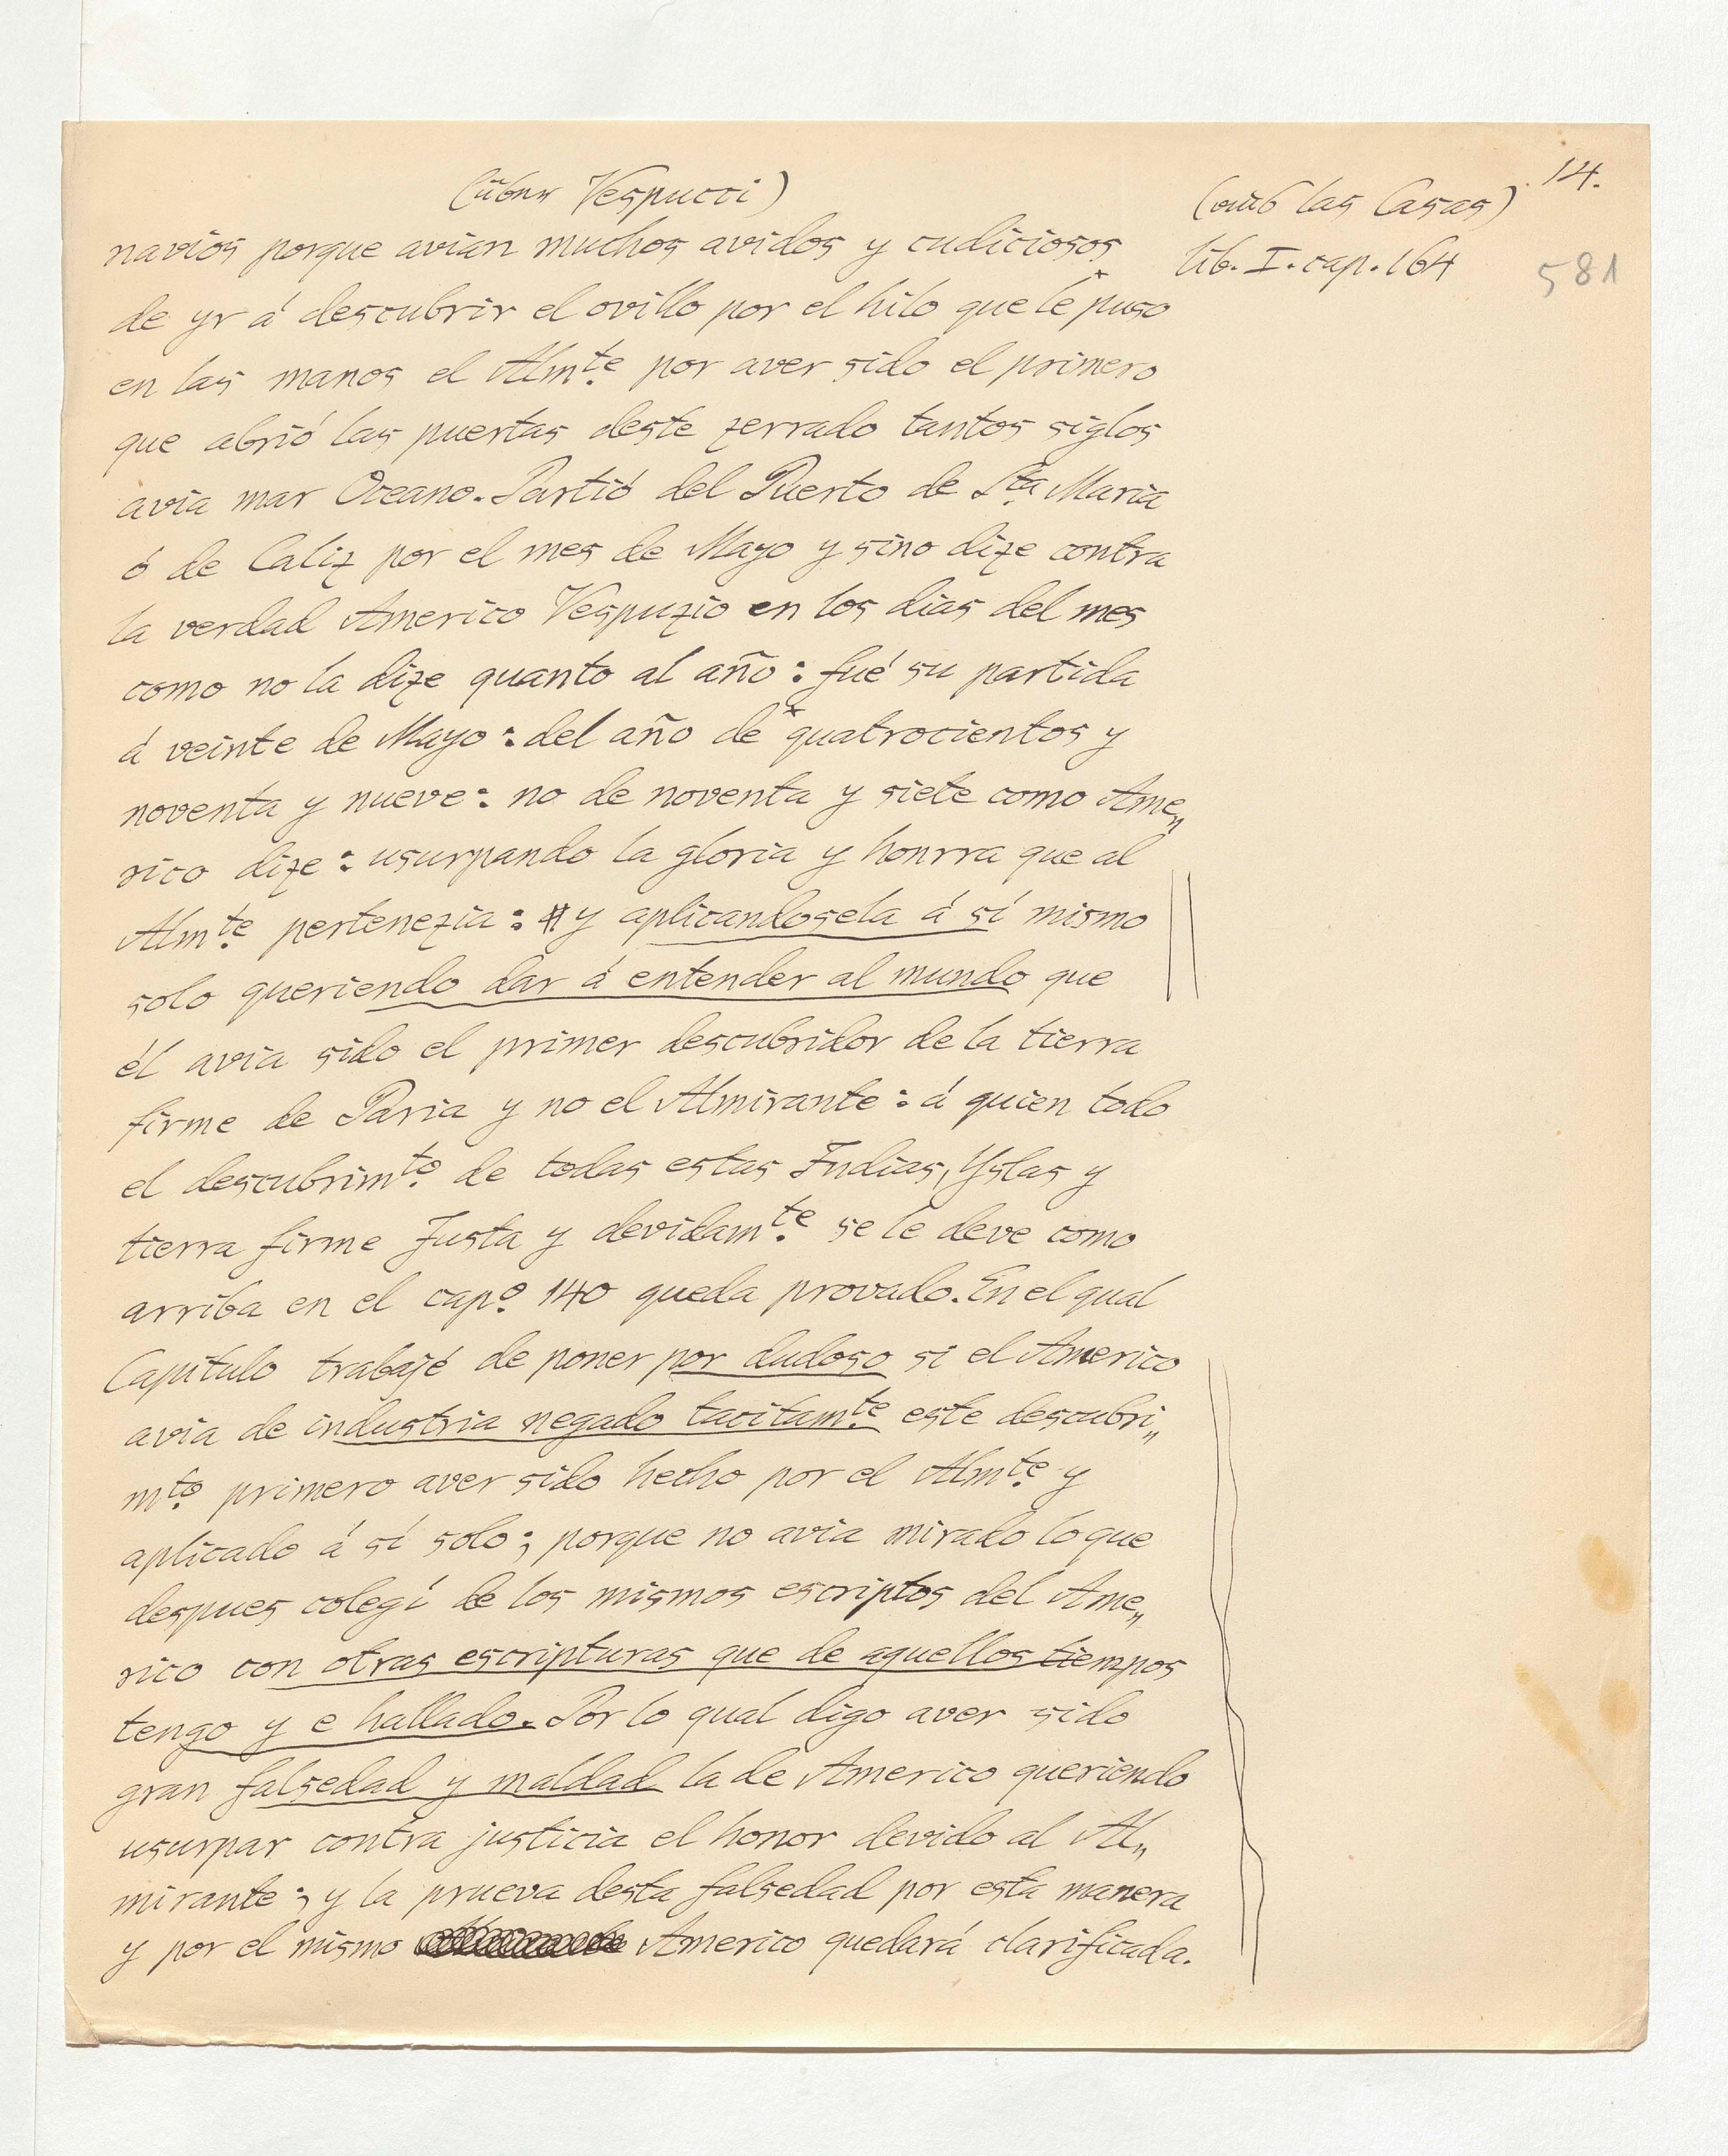 14.
(über Vespucci)
(aus las Casas)
lib. I. cap. 164
581
navios porque avian muchos avidos y cudiciosos
de yr á descubrir el ovillo por el hilo que le puso
en las manos el Almte. por aver sido el primero
que abrió las puertas deste zerrado tantos siglos
avia mar Oceano. Partió del Puerto de Sta. Maria
ó de Caliz por el mes de Mayo y sino dize contra
la verdad Americo Vespuzio en los dias del mes
como no la dize quanto al año: fué su partida
á veinte de Mayo: del año de * quatrocientos y
noventa y nueve: no de noventa y siete como Ame„
rico dize: usurpando la gloria y honrra que al
Almte. pertenezia: # y aplicandosela á sí mismo
solo queriendo dar á entender al mundo que
él avia sido el primer descubridor de la tierra
firme de Paria y no el Almirante: á quien todo
el descubrimto. de todas estas Indias, Yslas y
tierra firme Justa y devidamte. se le deve como
arriba en el capo. 140 queda provado. En el qual
Capitulo trabajé de poner por dudoso si el Americo
avia de industria negado tacitamte. este descubri„
mto. primero aver sido hecho por el Almte. y
aplicado á sí solo; porque no avia mirado lo que
despues colegí de los mismos escriptos del Ame„
rico con otras escripturas que de aquellos tiempos
tengo y e hallado. Por lo qual digo aver sido
gran falsedad y maldad la de Americo queriendo
usurpar contra justicia el honor devido al Al„
mirante; y la prueva desta falsedad por esta manera
y por el mismo Americo quedará clarificada.